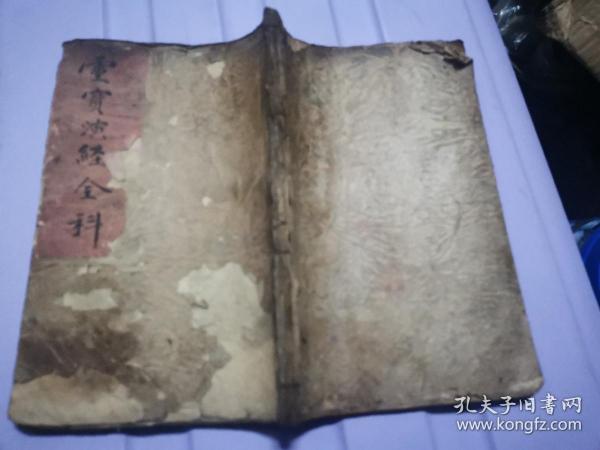 靈寳演經全科
孔夫子旧書网
www.kongfz.com